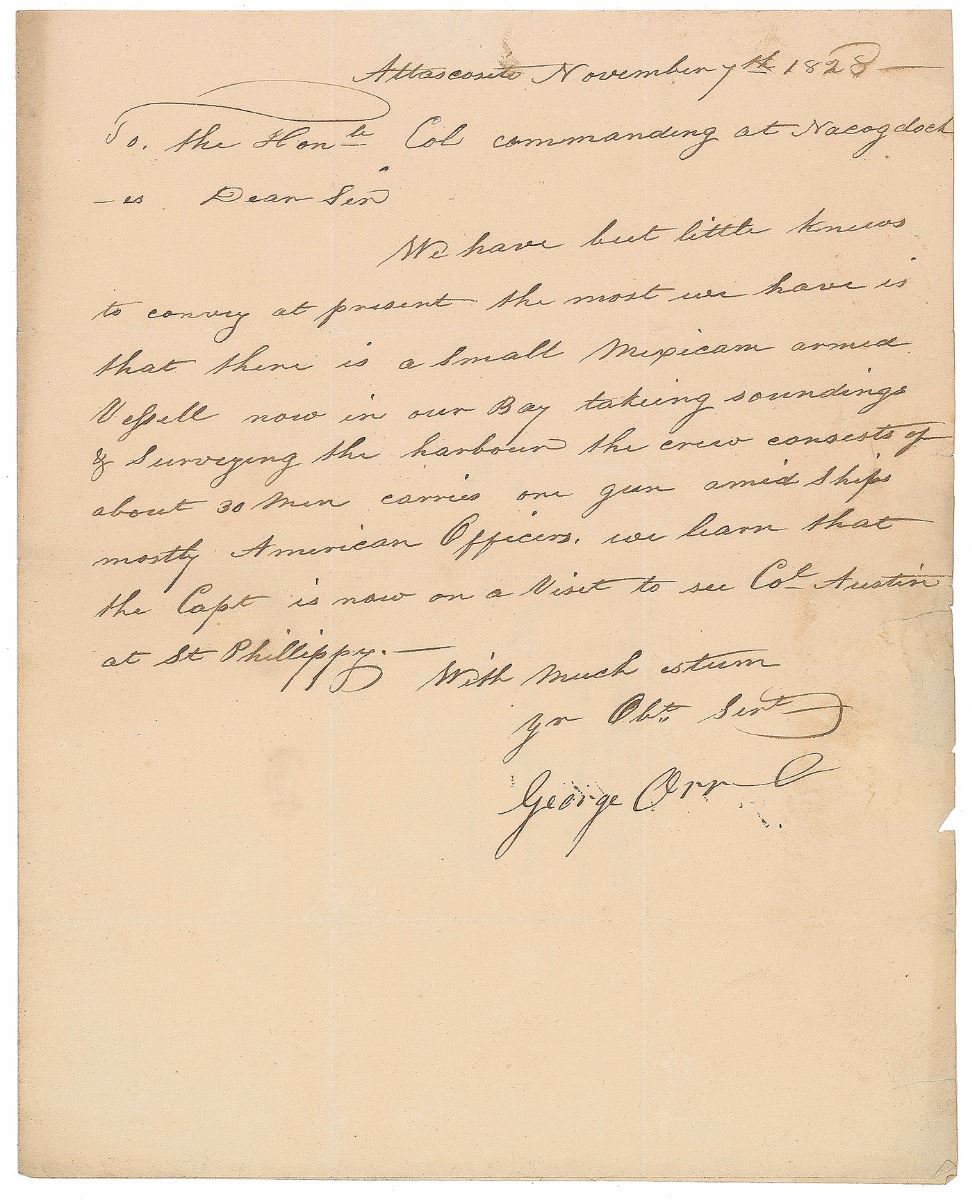 Attascosito November 7th 1828
To. the Honle Col commanding at Nacogdoch
- es Dear Sir
We have but little knews
to convey at present the most we have is
that there is a Small Mexicam armed
Vessell now in our Bay takeing soundings
& Surveying the harbour the crew consists of
about 30 Men carries one gun amid Ships
mostly American Officers. we learn that
the Capt is now on a Visit to see Col Austin
at St Phillippy. —
With Much esteem
yr Obt. Servt
George Orr